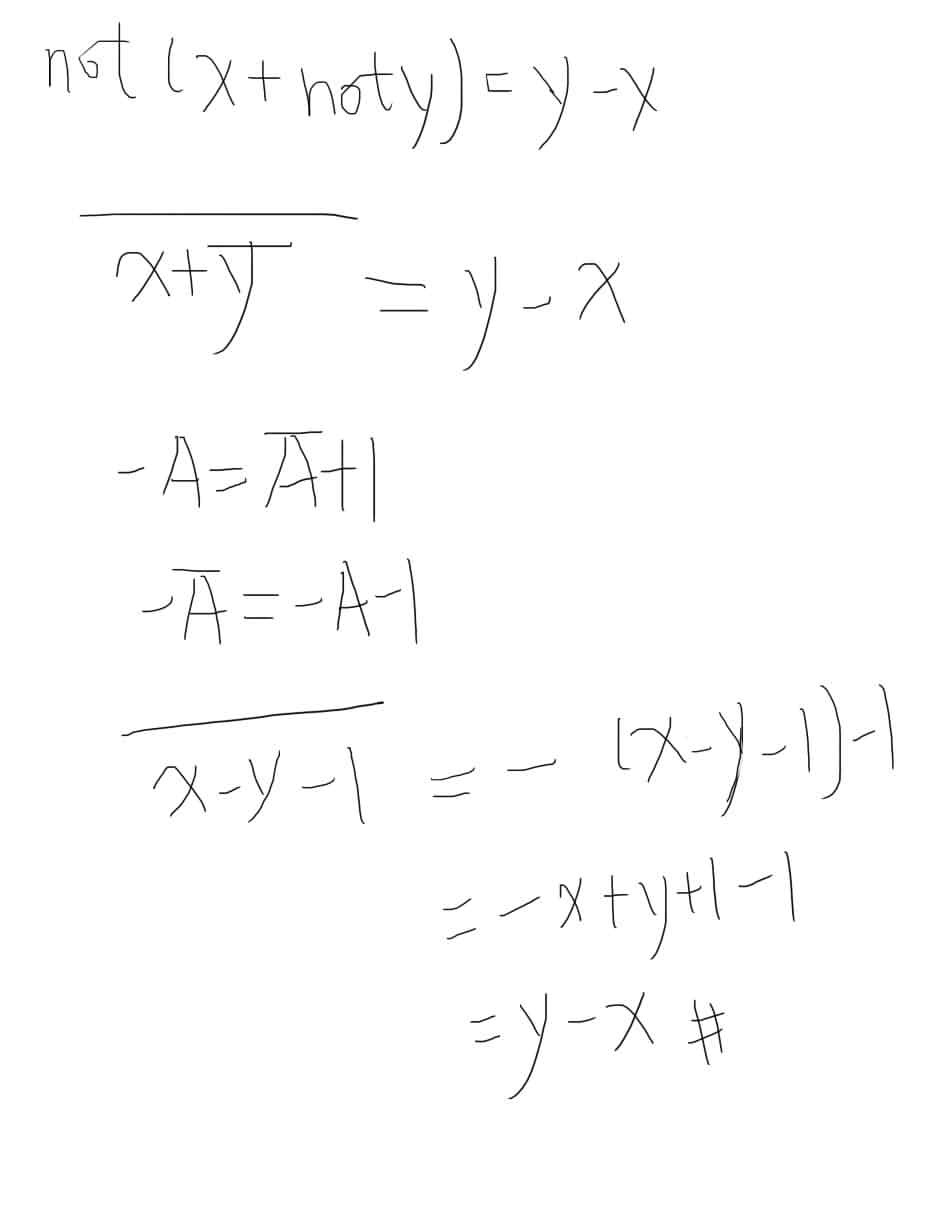 not (x + not y) = y - x
\overline{x + \overline{y}} = y - x
-A = \overline{A} + 1
-\overline{A} = -A - 1
\overline{x - y - 1} = - (x - y - 1) - 1
= -x + y + 1 - 1
= y - x #